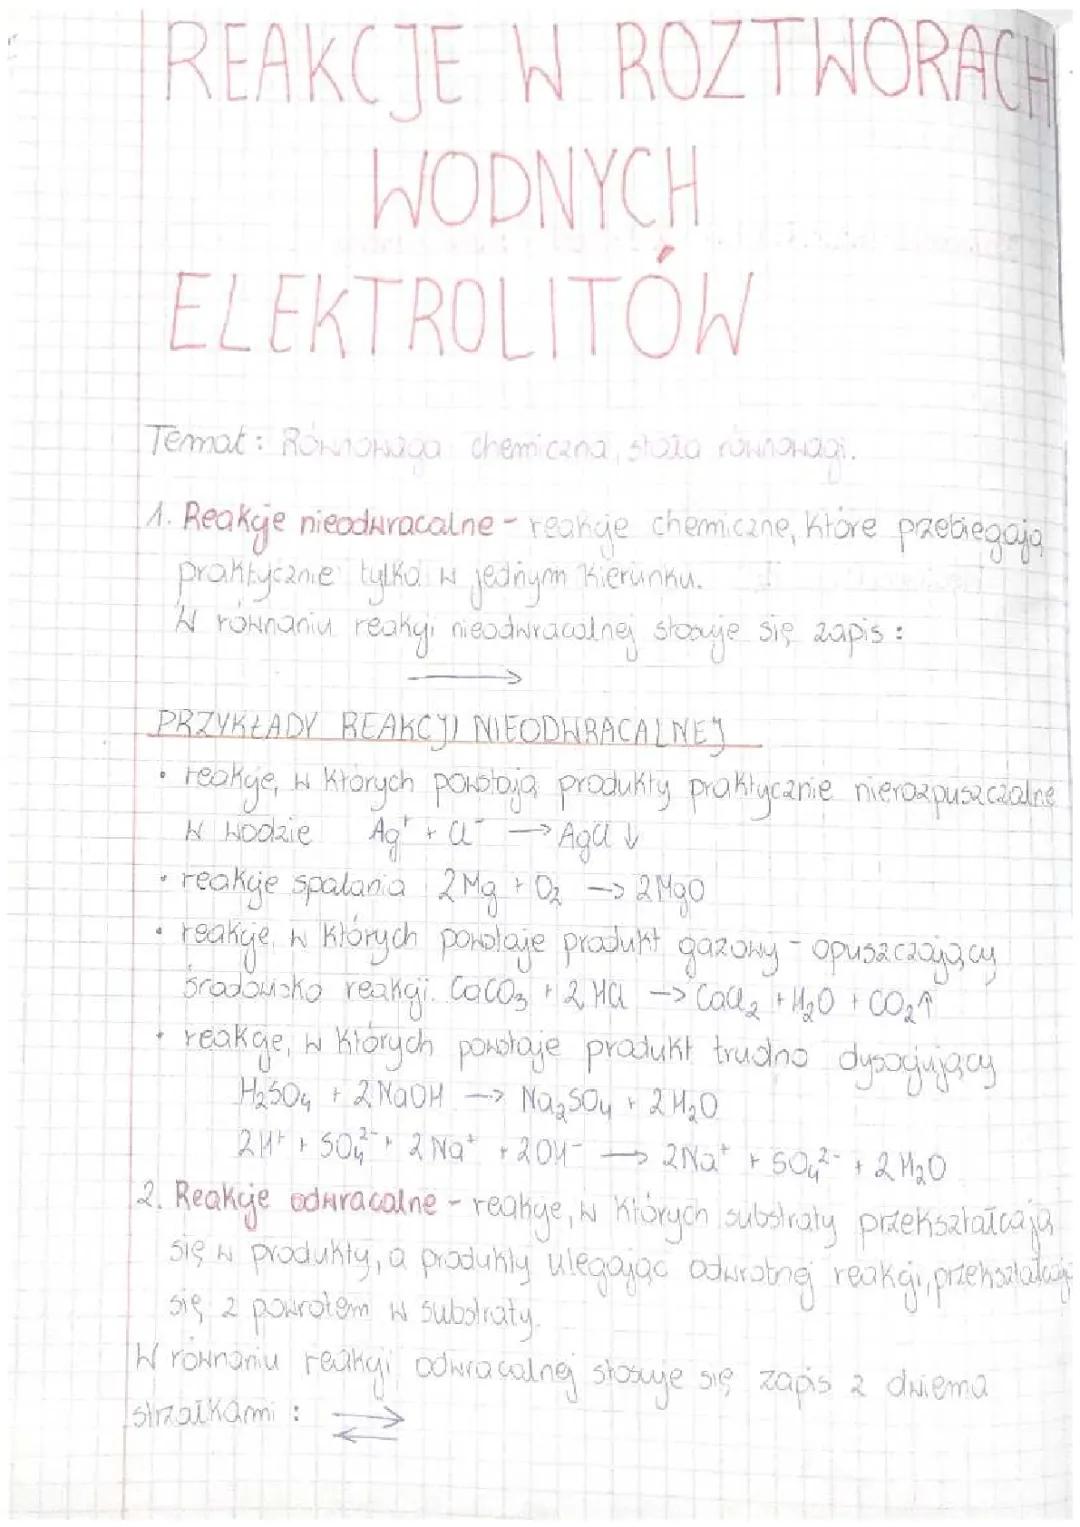 REAKCJE W ROZTWORACH
WODNYCH
ELEKTROLITÓW
Temat: Równowaga chemiczna, stała równowagi.
1. Reakcje nieodwracalne - reakcje chemiczne, które przebiegają
praktycznie tylko w jednym kierunku.
W równaniu reakcji nieodwracalnej stosuje się zapis :
→
PRZYKŁADY REAKCJI NIEODWRACALNEJ
• reakcje, w których powstają produkty praktycznie nierozpuszczalne
w wodzie Ag⁺ + Cl⁻ → AgCl ↓
• reakcje spalania 2Mg + O₂ → 2MgO
• reakcje, w których powstaje produkt gazowy - opuszczający
środowisko reakcji. CaCO₃ + 2HCl → CaCl₂ + H₂O + CO₂↑
• reakcje, w których powstaje produkt trudno dysocjujący
H₂SO₄ + 2NaOH → Na₂SO₄ + 2H₂O
2H⁺ + SO₄²⁻ + 2Na⁺ + 2OH⁻ → 2Na⁺ + SO₄²⁻ + 2H₂O
2. Reakcje odwracalne - reakcje, w których substraty przekształcają
się w produkty, a produkty ulegając odwrotnej reakcji, przekształcają
się z powrotem w substraty.
W równaniu reakcji odwracalnej stosuje się zapis z dwiema
strzałkami : ⇄